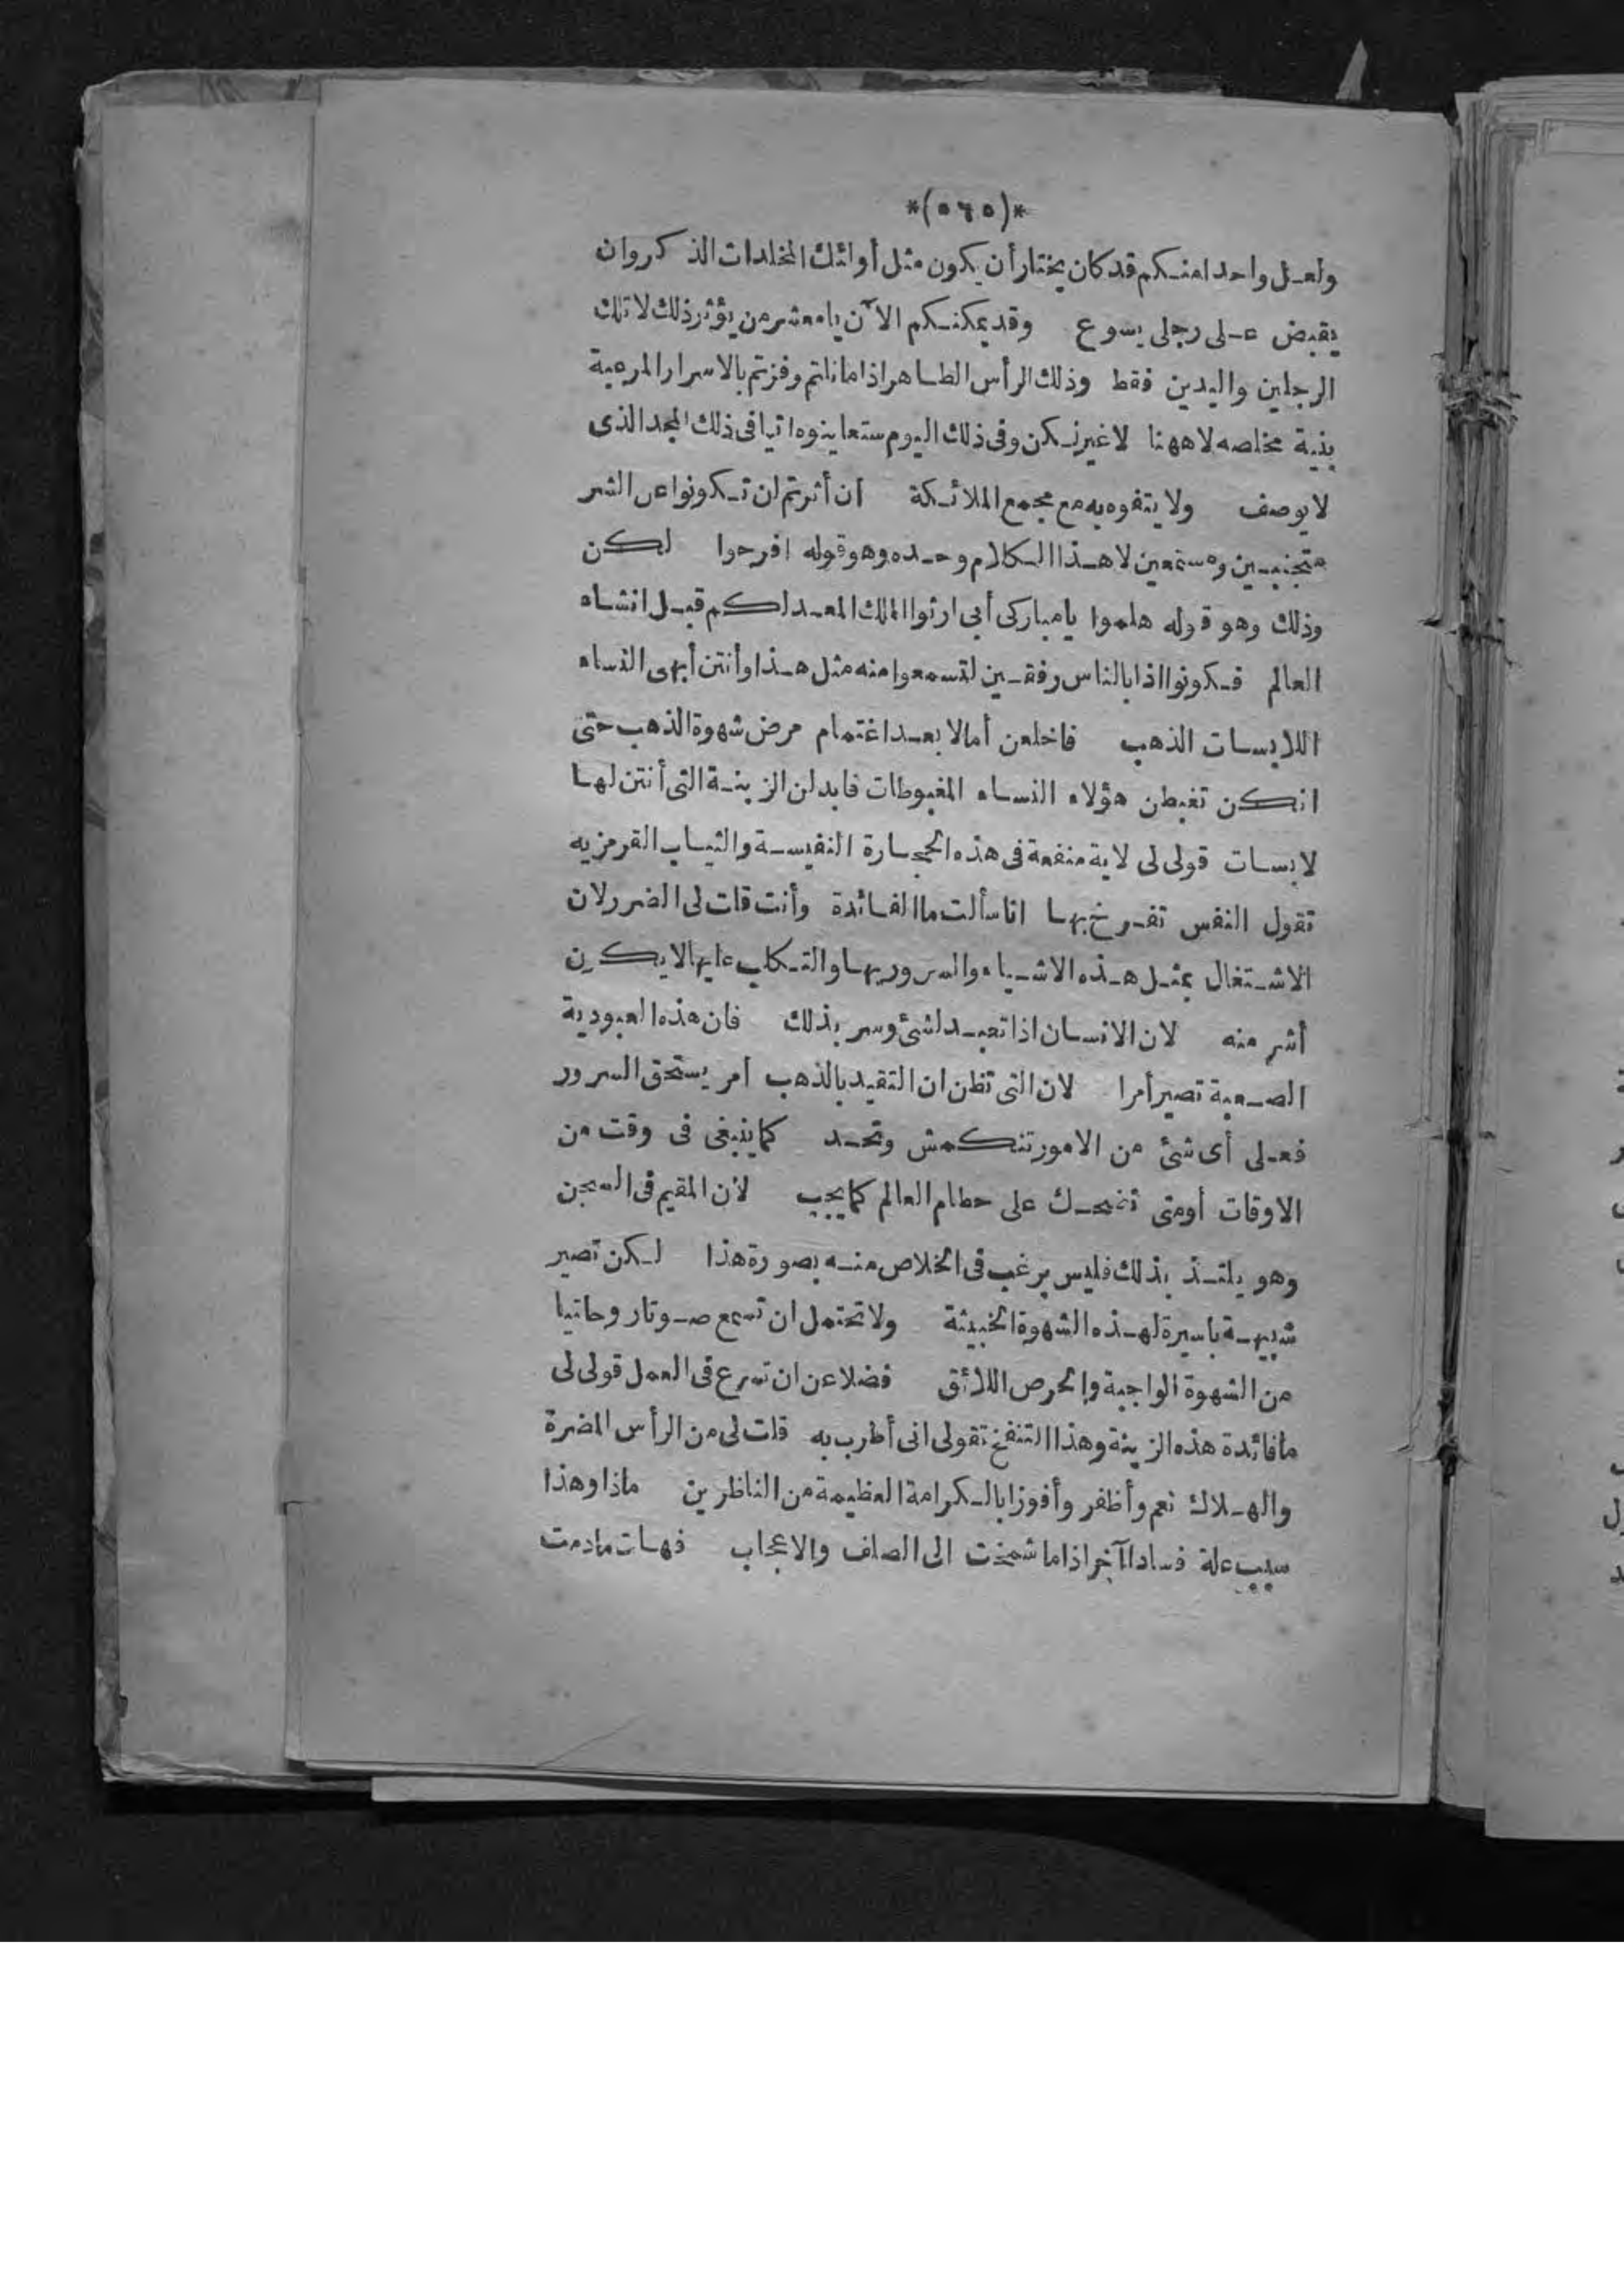 *(٥٦٥)*
ولعل واحدا منكم قد كان يختار أن يكون مثل أوائك المخلدات الذكر وان
يقبض على رجلى يسوع وقد يمكنكم الآن يا معشر من يؤثر ذلك لا تلك
الرجلين واليدين فقط وذلك الرأس الطاهر اذا ما نلتم وفزتم بالاسرار المرعبة
بنية مخلصه لا ههنا لا غير لكن وفى ذلك اليوم ستعاينوه اتيا فى ذلك المجد الذى
لا يوصف ولا يتفوه به مع مجمع الملائكة ان أثرتم لن تكونوا عن الشر
متجنبين ومستمعين لا هذا الكلام وحده وهو قوله افرحوا لكن
وذلك وهو قوله هلموا يا مباركى أبى ارثوا الملك المعد لكم قبل انشاء
العالم فكونوا اذا بالناس رفقين لتسمعوا منه مثل هذا وأنتن أيهى النساء
اللابسات الذهب فاخلعن أمالا بعد اغتمام مرض شهوة الذهب حتى
انكن تغبطن هؤلاء النساء المغبوطات فابدلن الزينة التى أنتن لها
لابسات قولى لى لاية منفعة فى هذه الحجارة النفيسة والثياب القرمزيه
تقول النفس تفرخ بها انا سألت ما الفائدة وأنت قلت لى الضرر لان
الاشتغال بمثل هذه الاشياء والسرور بها والتكالب عليها لا يكون
أشر منه لان الانسان اذا تعبد لشئ وسر بذلك فان هذه العبودية
الصعبة تصير أمرا لان التى تظن ان التقيد بالذهب امر يستحق السرور
فعلى أى شئ من الامور تنكمش وتجد كما ينبغى فى وقت من
الاوقات أومتى تضحك على حطام العالم كما يجب لأن المقيم فى السجن
وهو يلتذ بذلك فليس يرغب فى الخلاص منه بصورة هذا لكن تصير
شبيهة باسيرة لهذه الشهوة الخبيثة ولا تحتمل ان تسمع صوتا روحانيا
من الشهوة الواجبة والحرص اللائق فضلا عن ان تسرع فى العمل قولى لى
ما فائدة هذه الزينة وهذا التنفخ تقولى انى أطرب به قلت لى من الرأس المضرة
والهلاك نعم وأظفر وأفوز ا بالكرامة العظيمة من الناظرين ماذا وهذا
سبب علة فسادا آخر اذا ما شمخت الى الصلف والاعجاب فهات ما دمت